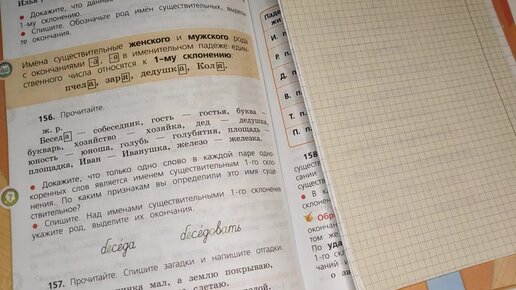 • Докажите, что данные
1-му склонению.
• Спишите. Обозначьте род имён существительных, выделите
те окончания.
Имена существительные женского и мужского рода
с окончаниями -а, -я в именительном падеже един-
ственного числа относятся к 1-му склонению:
пчела, заря, дедушка, Коля.
156. Прочитайте.
ж. р.
Беседа — собеседник, гость — гостья, буква —
букварь, хозяйство — хозяйка, дед — дедушка,
юность — юноша, голубь — голубятня, площадь —
площадка, Иван — Иванушка, железо — железка.
• Докажите, что только одно слово в каждой паре одно-
коренных слов является именем существительным 1-го скло-
нения. По каким признакам вы определили это имя суще-
ствительное?
• Спишите. Над именами существительными 1-го склонения
укажите род, выделите их окончания.
беседа беседовать
157. Прочитайте. Спишите загадки и напишите отгадки.
мал, а землю покрываю,
слетаю.
Паде
жи
И. п.
Р. п.
Д. п.
В. п.
Т. п.
П. п.
158
сущест
сании
сущест
• В ка
Обр
окончан
том же
По уда
1-го скл
чаний
о зв